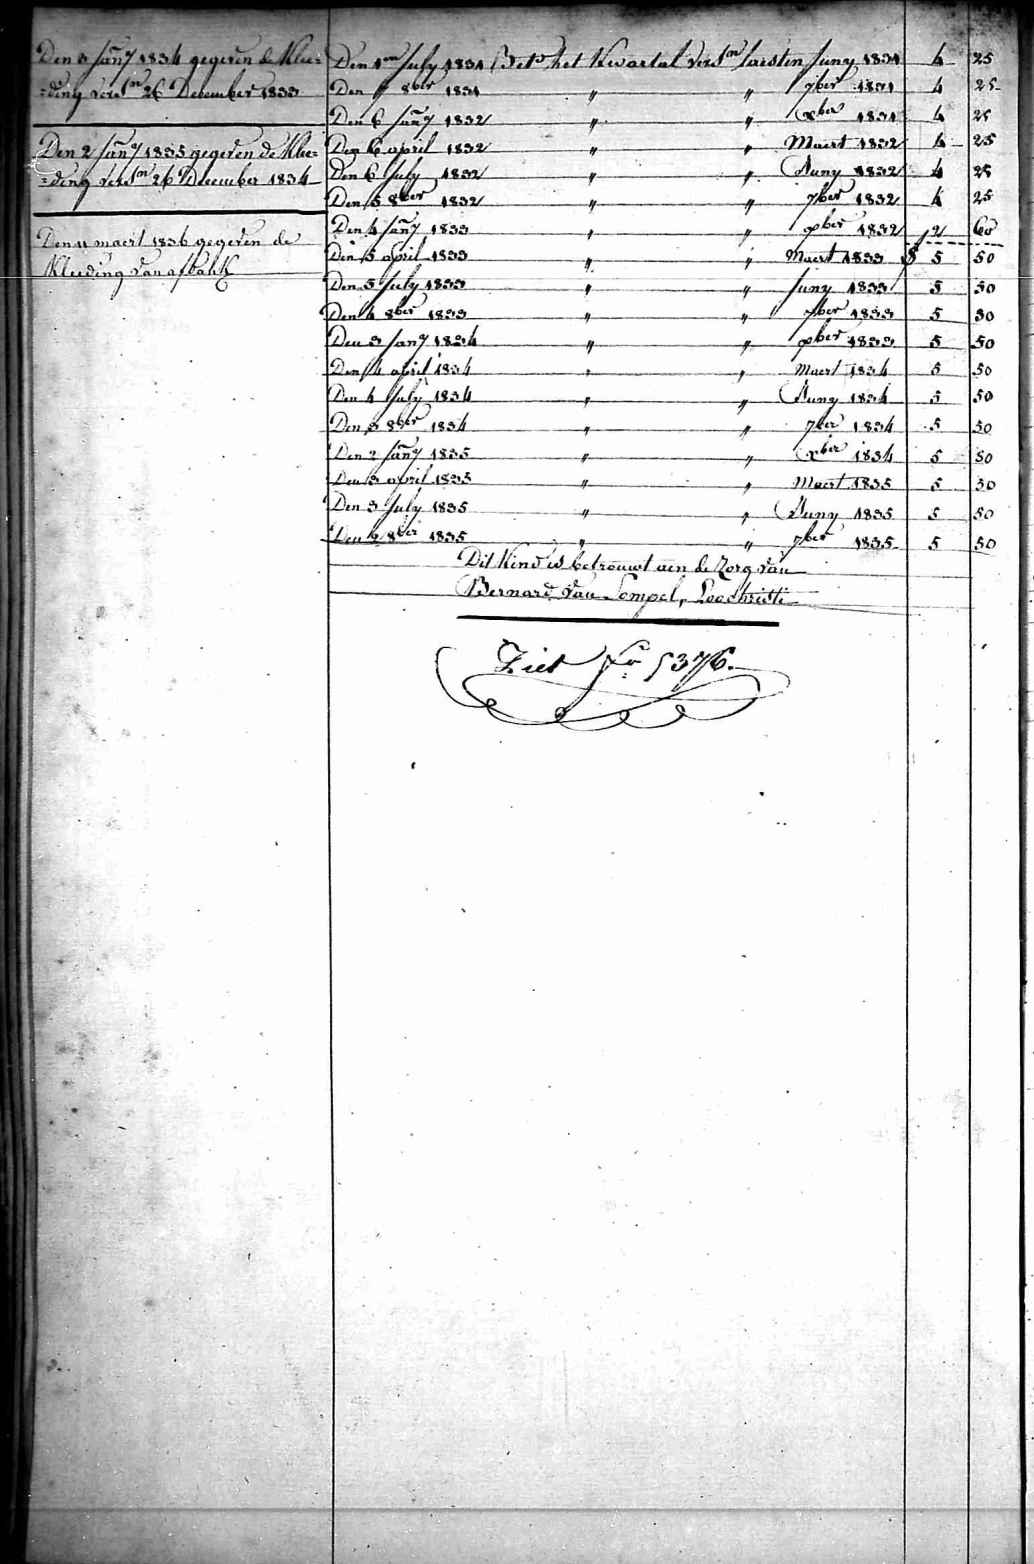 Den 3 Jan̄y 1834 gegeven de Klee=
=ding versn 26 December 1833
Den 2 Jan̄y 1835 gegeven de Klee=
=ding versn 26 December 1834
Den 11 maert 1836 gegeven de
Kleeding van afbalk
Den 1en July 1831 Bets het Kwartal versn laesten Juny 1831 4 25
Den 7 8ber 1831 " " 7ber 1831 4 25
Den 6 Jan̄y 1832 " " xber 1831 4 25
Den 6 april 1832 " " Maert 1832 4 25
Den 6 July 1832 " " Juny 1832 4 25
Den 5 8ber 1832 " " 7ber 1832 4 25
Den 4 Jan̄y 1833 " " xber 1832 12 60
Den 5 april 1833 " " Maert 1833 5 50
Den 5 July 1833 " " Juny 1833 5 50
Den 4 8ber 1833 " " 7ber 1833 5 50
Den 3 Jan̄y 1834 " " xber 1833 5 50
Den 4 april 1834 " " Maert 1834 5 50
Den 4 July 1834 " " Juny 1834 5 50
Den 3 8ber 1834 " " 7ber 1834 5 50
Den 2 Jan̄y 1835 " " xber 1834 5 50
Den 3 april 1835 " " Maert 1835 5 50
Den 3 July 1835 " " Juny 1835 5 50
Den 2 8ber 1835 " " 7ber 1835 5 50
Dit Kind is betrouwt aen de Zorg van
Bernard Van Lompel, Loochristi
Ziet Fo 5376.